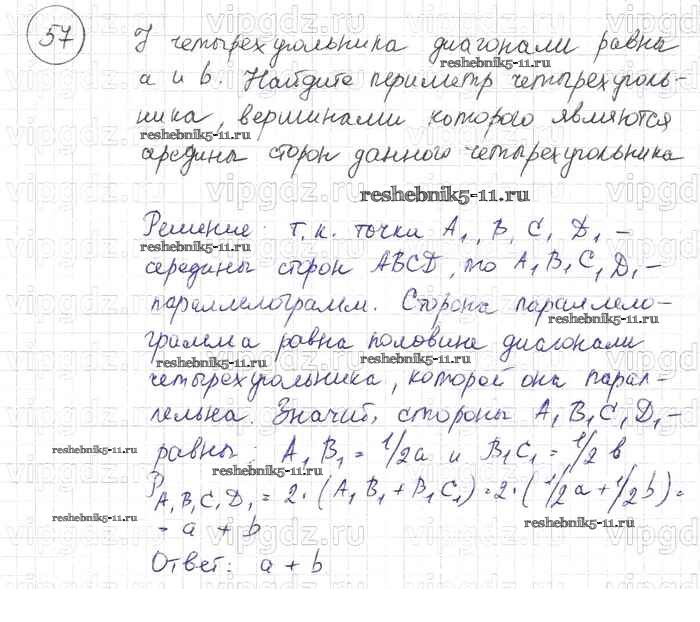 57
У четырехугольника диагонали равны
a и b. Найдите периметр четырехуголь-
ника, вершинами которого являются
середины сторон данного четырехугольника
Решение: т.к. точки A₁, B₁ C₁ D₁ –
середины сторон ABCD, то A₁B₁C₁D₁ –
параллелограмм. Сторона параллело-
грамма равна половине диагонали
четырехугольника, которой она парал-
лельна. Значит, стороны A₁B₁C₁D₁ –
равны: A₁B₁ = 1/2a и B₁C₁ = 1/2 b
P A₁B₁C₁D₁ = 2·(A₁B₁ + B₁C₁) = 2·(1/2a + 1/2b) =
= a + b
Ответ: a + b
reshebnik5-11.ru
vipgdz.ru